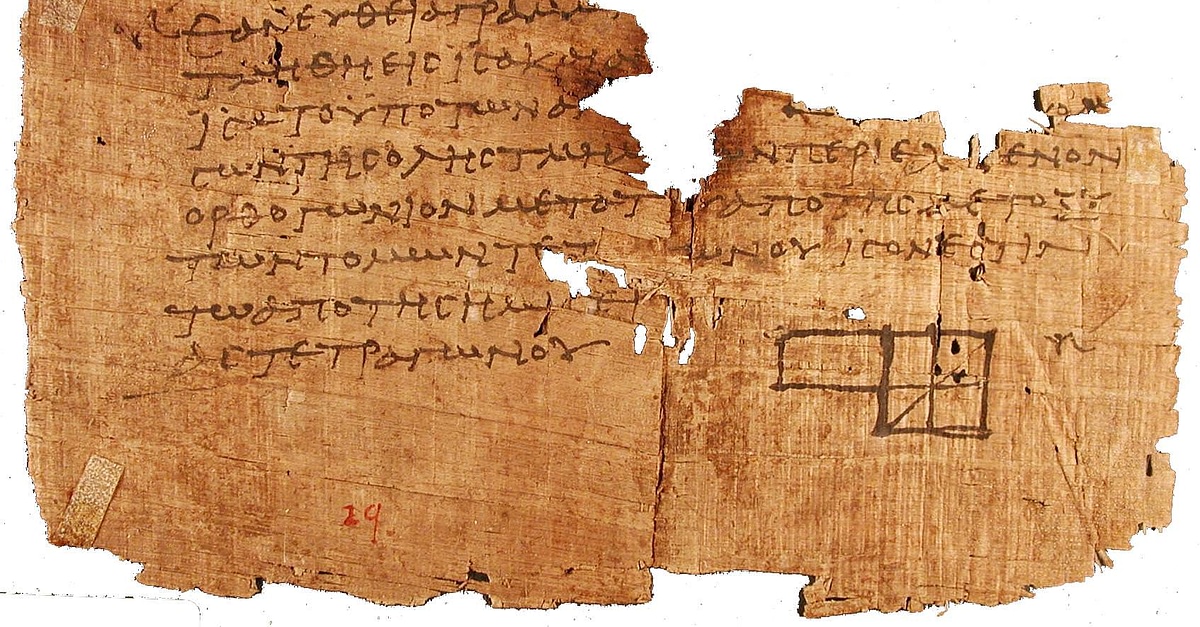 ΕΑΝΕΥΘΕΙΑΓΡΑΜΜ
ΤΜΗΘΗΕΙCΙCΑΚΑΙΑ
ΙCΑΤΟΥΠΟΤΩΝΑ
CΩΝΤΗCΟΛΗCΤΜΗΜ ΩΝΠΕΡΙΕΧ ΕΝΟΝ
ΟΡΘΟΓΩΝΙΟΝΜΕΤΟΤ ΑΠΟΤΗCΜΕΤΟΞΥ
ΤΩΝΤΟΜΩΝΤΕΤ ΩΝΟΥ ΙCΟΝΕCΤΙΝ
ΤΩΑΠΟΤΗCΗΜΙ
ΑCΤΕΤΡΑΓΩΝΟΥ
29